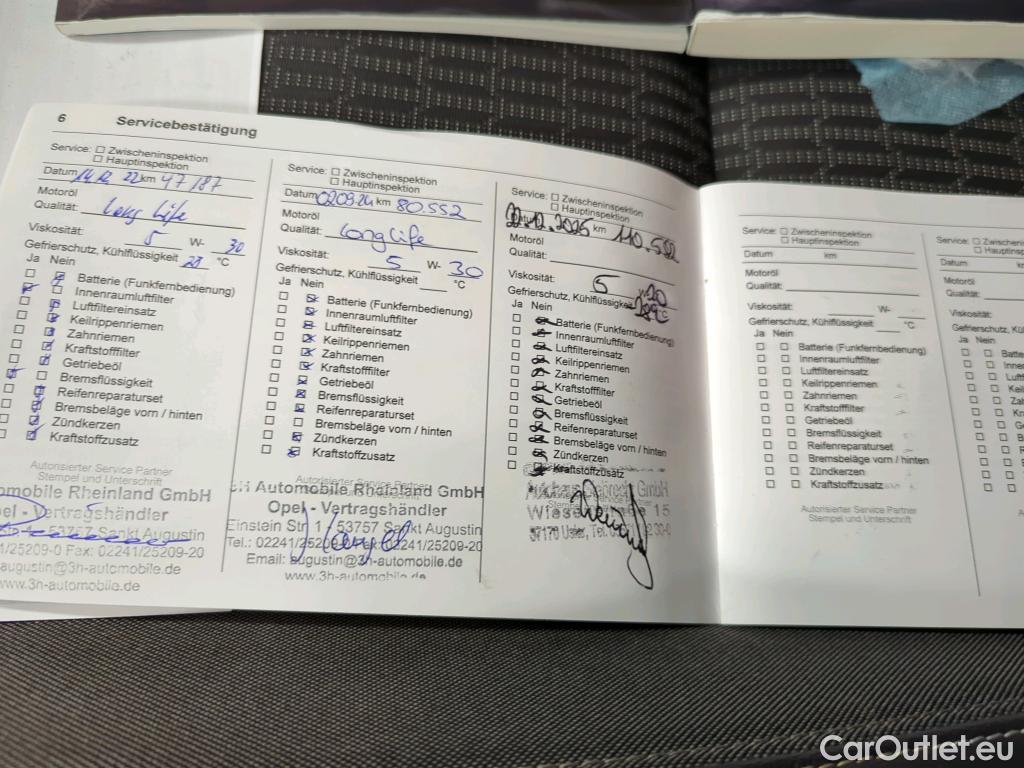 6 Servicebestätigung
Service: ☐ Zwischeninspektion
☐ Hauptinspektion
Datum 14.12.22 km 47187
Motoröl
Qualität: Long Life
Viskosität: 5 W- 30
Gefrierschutz, Kühlflüssigkeit 28 °C
Ja Nein
Batterie (Funkfernbedienung)
Innenraumluftfilter
Luftfiltereinsatz
Keilrippenriemen
Zahnriemen
Kraftstofffilter
Getriebeöl
Bremsflüssigkeit
Reifenreparaturset
Bremsbeläge vorn / hinten
Zündkerzen
Kraftstoffzusatz
Autorisierter Service Partner
Stempel und Unterschrift
omobile Rheinland GmbH
pel - Vertragshändler
53757 Sankt Augustin
41/25209-0 Fax: 02241/25209-20
augustin@3h-automobile.de
www.3h-automobile.de
Service: ☐ Zwischeninspektion
☐ Hauptinspektion
Datum 020924 km 80.552
Motoröl
Qualität: Longlife
Viskosität: 5 W- 30
Gefrierschutz, Kühlflüssigkeit °C
Ja Nein
Batterie (Funkfernbedienung)
Innenraumluftfilter
Luftfiltereinsatz
Keilrippenriemen
Zahnriemen
Kraftstofffilter
Getriebeöl
Bremsflüssigkeit
Reifenreparaturset
Bremsbeläge vorn / hinten
Zündkerzen
Kraftstoffzusatz
Autorisierter Service Partner
3H Automobile Rheinland GmbH
Opel - Vertragshändler
Einstein Str. 1 / 53757 Sankt Augustin
Tel.: 02241/25209-0 Fax: 02241/25209-20
Email: augustin@3h-automobile.de
www.3h-automobile.de
Service: ☐ Zwischeninspektion
☐ Hauptinspektion
Datum .12.2025 km 110.552
Motoröl
Qualität:
Viskosität: 5
Gefrierschutz, Kühlflüssigkeit
Ja Nein
Batterie (Funkfernbedienung)
Innenraumluftfilter
Luftfiltereinsatz
Keilrippenriemen
Zahnriemen
Kraftstofffilter
Getriebeöl
Bremsflüssigkeit
Reifenreparaturset
Bremsbeläge vorn / hinten
Zündkerzen
Kraftstoffzusatz
GmbH
15
Uslar, Tel.
Service: ☐ Zwischeninspektion
☐ Hauptinspektion
Datum km
Motoröl
Qualität:
Viskosität: W-
Gefrierschutz, Kühlflüssigkeit °C
Ja Nein
☐ ☐ Batterie (Funkfernbedienung)
☐ ☐ Innenraumluftfilter
☐ ☐ Luftfiltereinsatz
☐ ☐ Keilrippenriemen
☐ ☐ Zahnriemen
☐ ☐ Kraftstofffilter
☐ ☐ Getriebeöl
☐ ☐ Bremsflüssigkeit
☐ ☐ Reifenreparaturset
☐ ☐ Bremsbeläge vorn / hinten
☐ ☐ Zündkerzen
☐ ☐ Kraftstoffzusatz
Autorisierter Service Partner
Stempel und Unterschrift
Service: ☐ Zwischenin
☐ Hauptinsp
Datum km
Motoröl
Qualität:
Viskosität:
Gefrierschutz, Kühlflü
Ja Nein
CarOutlet.eu